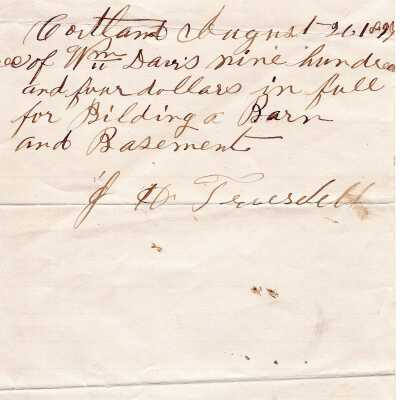 Cortland August 26, 189
of Wm Davis nine hundred
and four dollars in full
for Bilding a Barn
and Basement
J W Truesdell